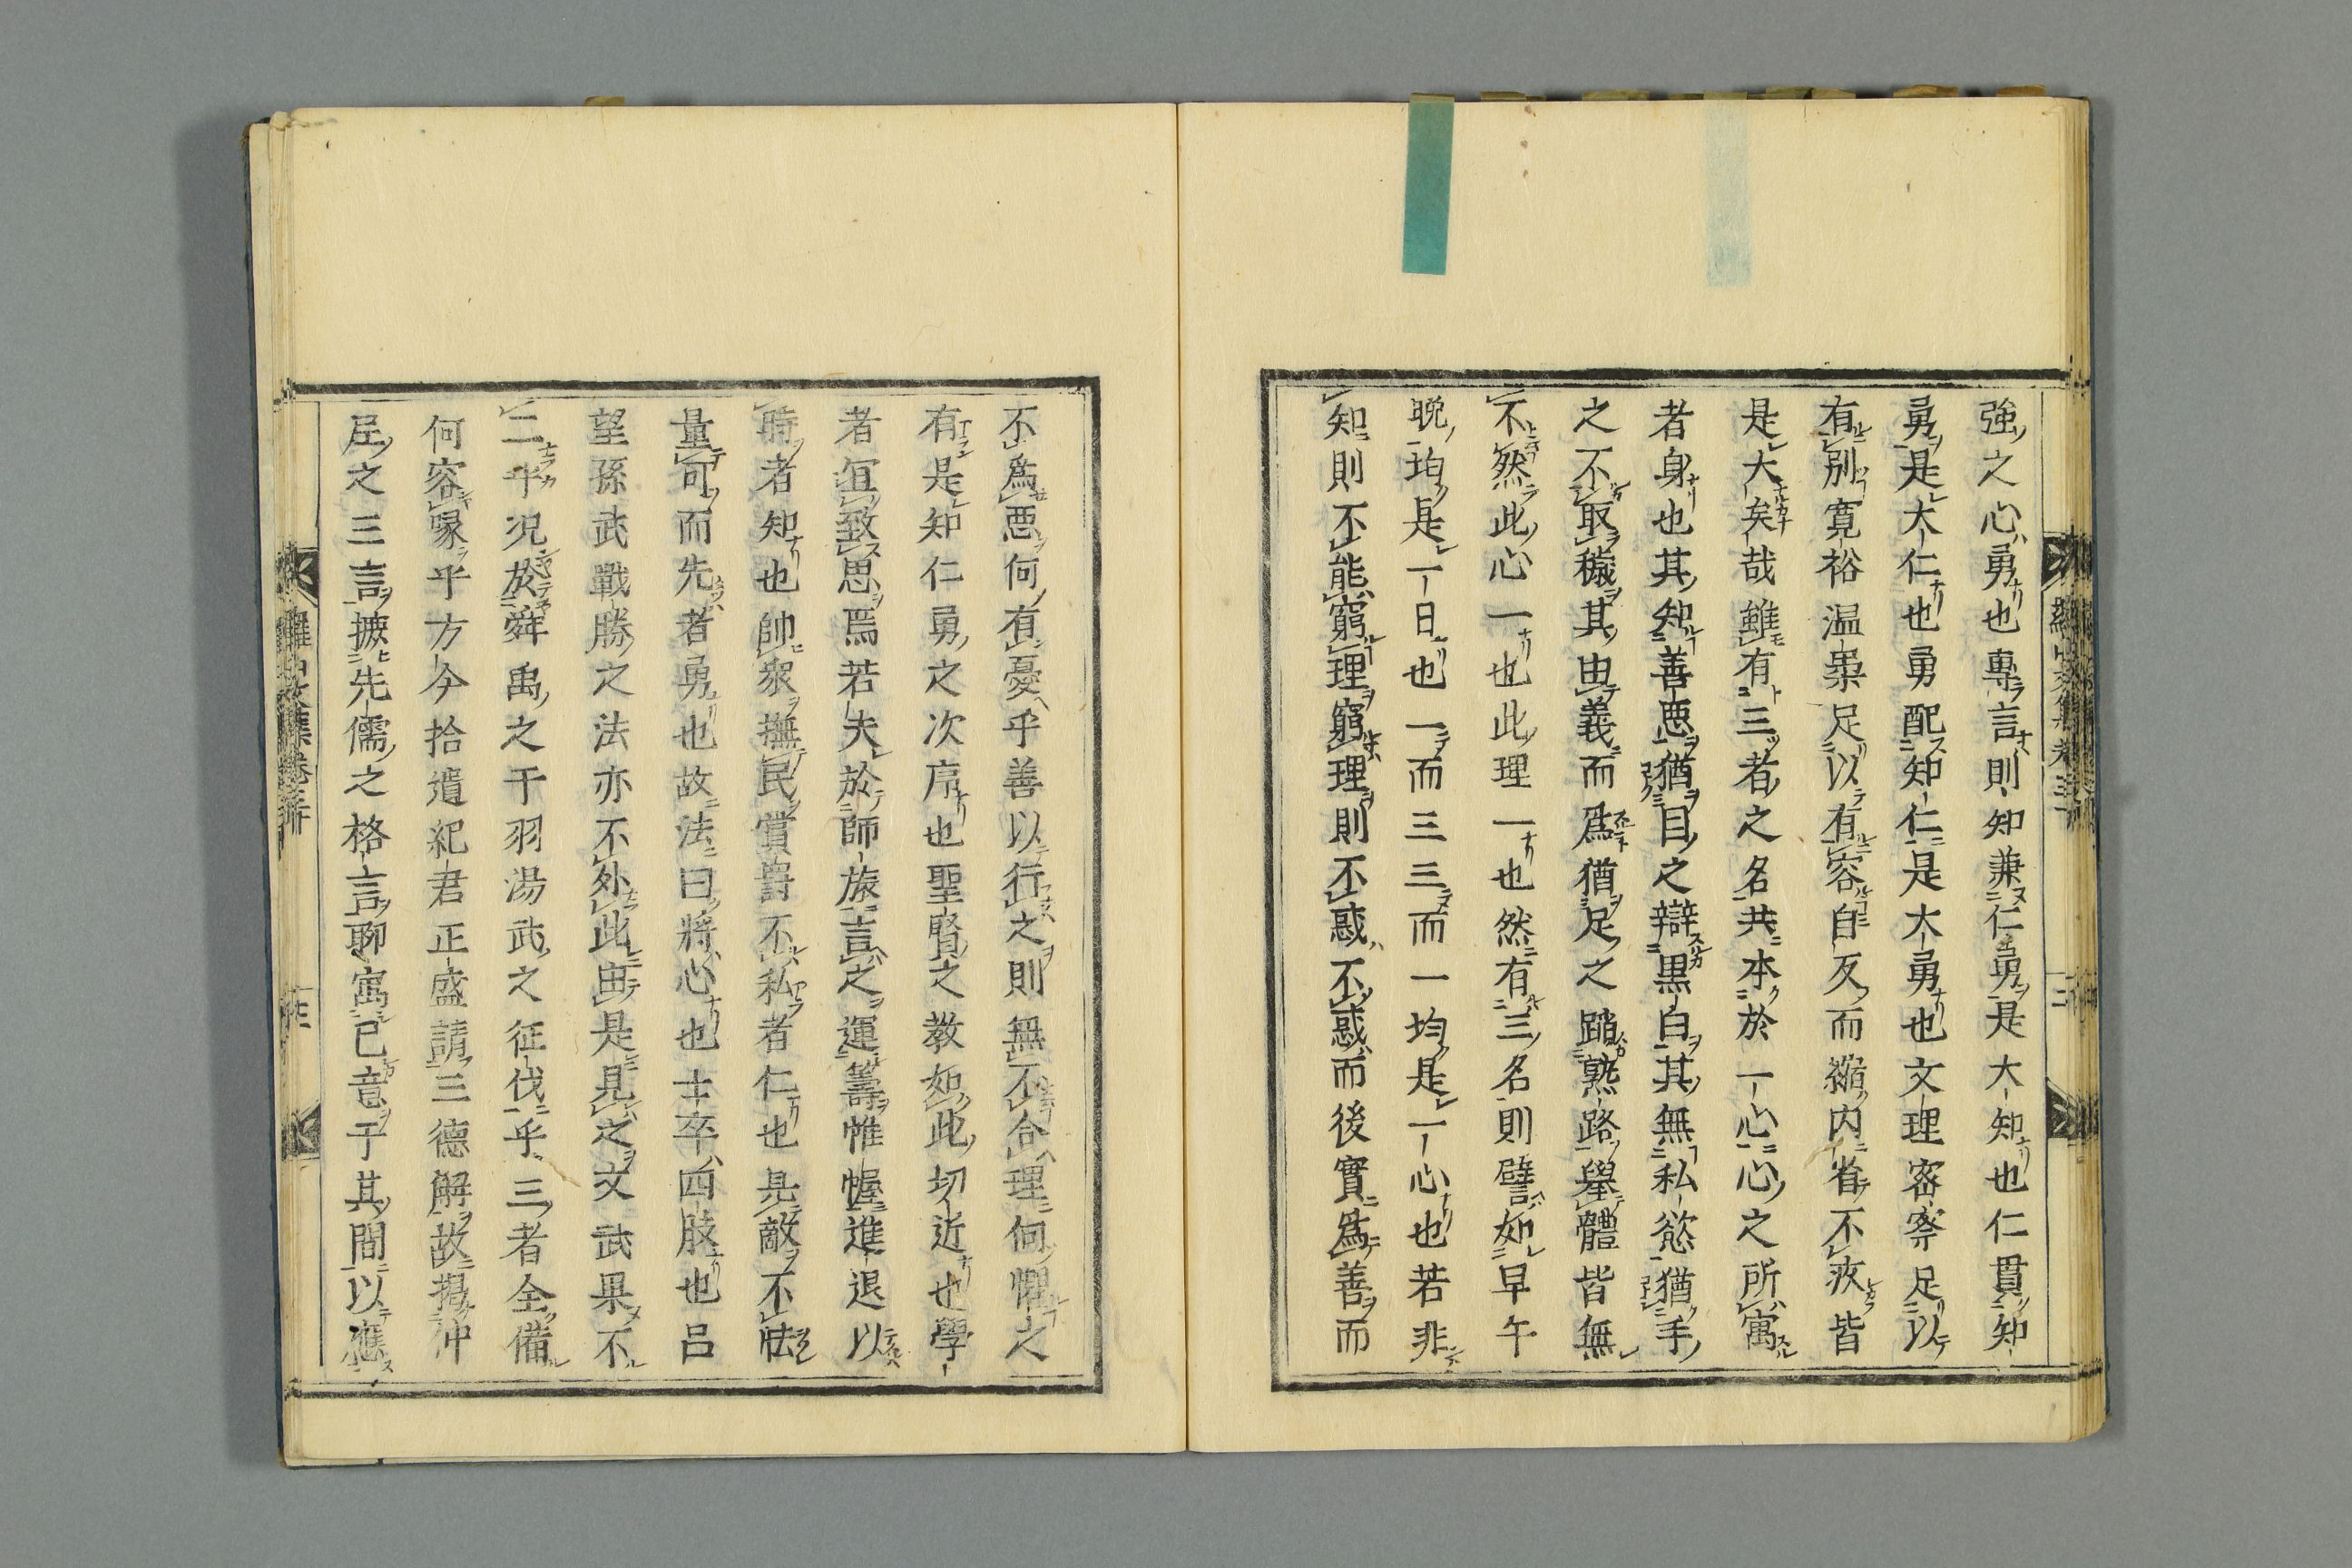 強之心勇也專言則知兼仁勇是大知也仁貫知
勇是大仁也勇配知仁是大勇也文理密察足以
有別寬裕温柔足以有容自反而縮内省不疚皆
是大矣哉雖有三者之名共本於一心心之所寓
者身也其知善惡猶目之辯黒白其無私慾猶手
之不取穢其由義而爲猶足之踏熟路擧體皆無
不然此心一也此理一也然有三名則譬如早午
晩均是一日也一而三三而一均是一心也若非
知則不能窮理窮理則不惑不惑而後實爲善而
不爲惡何有憂乎善以行之則無不合理何懼之
有是知仁勇之次序也聖賢之教如此切近也學
者宜致思焉若夫於師旅言之運籌帷幄進退以
時者知也帥衆撫民賞爵不私者仁也見敵不怯
量可而先者勇也故法曰將心也士卒四肢也呂
望孫武戰勝之法亦不外此由是見之文武果不
二乎况於舜禹之干羽湯武之征伐乎三者全備
何容喙乎方今拾遺紀君正盛請三德解故揭仲
尼之三言摭先儒之格言聊寓己意于其間以應